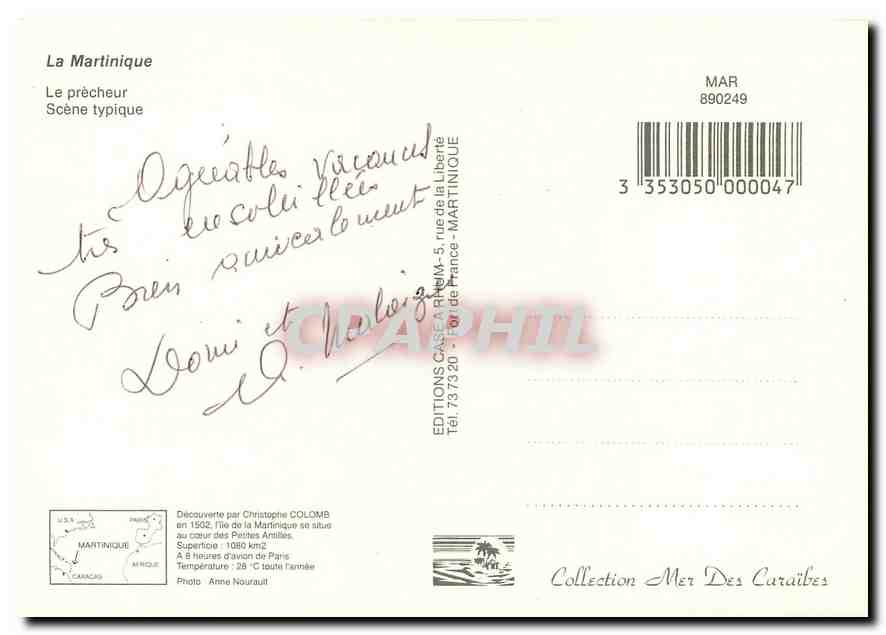 La Martinique
Le prècheur
Scène typique
MAR
890249
3 353050 000047
Agréables vacances
très ensoleillées
Bien amicalement
Domi et
EDITIONS CASE A RHUM - 5, rue de la Liberté
Tél. 73 73 20 - Fort de France - MARTINIQUE
CPAPHIL
U.S.A
PARIS
MARTINIQUE
CARACAS
AFRIQUE
Découverte par Christophe COLOMB
en 1502, l'île de la Martinique se situe
au cœur des Petites Antilles.
Superficie : 1080 km2
A 8 heures d'avion de Paris
Température : 28 °C toute l'année
Photo : Anne Nourault
Collection Mer Des Caraïbes